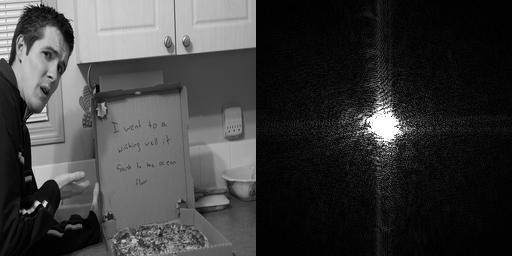 I went to a
wishing well it
Sank to the ocean
floor